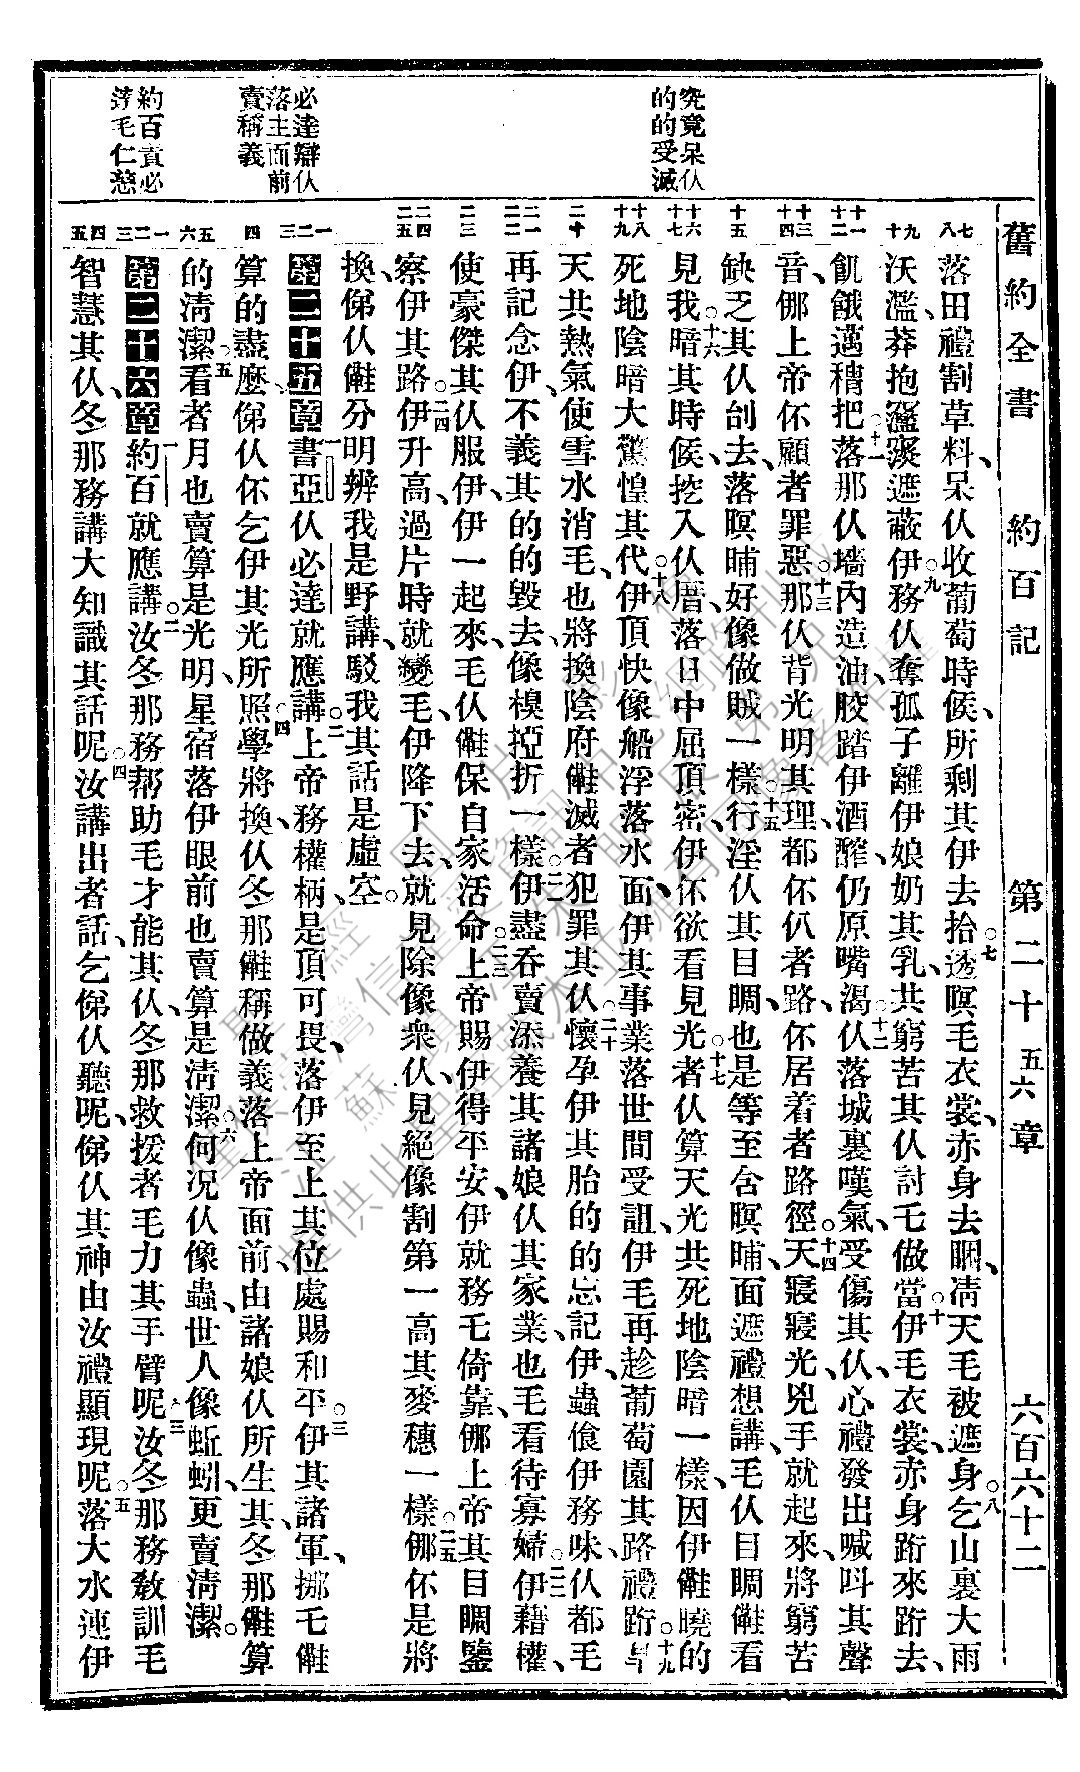 舊約全書 約百記 第二十五六章 六百六十二
究竟呆仈
的的受滅
必達辯仈
落主面前
賣稱義
約百責必
達毛仁慈
七八 九十 十一十二 十三十四 十五 十六十七 十八十九 二十 二一二二 二三 二四二五 一二三 四 五六 一二三 四五
落田禮割草料、呆仈收葡萄時候、所剩其伊去拾。七透暝毛衣裳、赤身去睏、凊天毛被遮身。八乞山裏大雨
沃濫、莽抱𥕢遮蔽伊。九務仈奪孤子離伊娘奶其乳、共窮苦其仈討乇做當。十伊毛衣裳、赤身跨來跨去、
飢餓邁𥟖把。十一落那仈墻內造油、骹踏伊酒醡、仍原嘴渴。十二仈落城裏嘆氣、受傷其仈、心禮發出喊叫其聲
音、㑚上帝伓顧者罪惡。十三那仈背光明其理、都伓仈者路、伓居着者路徑。十四天寢寢光、兇手就起來、將窮苦
缺乏其仈刣去、落暝晡好像做賊一樣。十五行淫仈其目睭、也是等至含暝晡、面遮禮想講、毛仈目睭𣍐看
見我。十六暗其時候、挖入仈厝、落日中屈頂密、伊伓欲看見光。十七者仈算天光共死地陰暗一樣、因伊𣍐曉的
死地陰暗大驚惶其代。十八伊頂快像船浮落水面、伊其事業落世間受詛、伊毛再趁葡萄園其路禮跨。十九旱
天共熱氣、使雪水消毛、也將換陰府𣍐滅者犯罪其仈。二十懷孕伊其胎的的忘記伊、蟲食伊務味、仈都毛
再記念伊、不義其的的毀去、像樹挜折一樣。二一伊盡吞賣添養其諸娘仈其家業、也毛看待寡婦。二二伊藉權
使豪傑其仈服伊、伊一起來、毛仈𣍐保自家活命。二三上帝賜伊得平安、伊就務乇倚靠、㑚上帝其目睭鑒
察伊其路。二四伊升高、過片時就變毛、伊降下去、就見除像衆仈、見絕像割第一高其麥穗一樣。二五㑚伓是將
換、俤仈𣍐分明辨我是野講、駁我其話是虛空。
第二十五章 一書亞仈必達就應講。二上帝務權柄、是頂可畏、落伊至上其位處賜和平。三伊其諸軍、挪乇𣍐
算的盡麼、俤仈伓乞伊其光所照。四學將換、仈冬那𣍐稱做義落上帝面前、由諸娘仈所生其、冬那𣍐算
的清潔。五看者月也賣算是光明、星宿落伊眼前也賣算是清潔。六何況仈像蟲、世人像蚯蚓、更賣清潔。
第二十六章 一約百就應講。二汝冬那務帮助毛才能其仈、冬那救援者毛力其手臂呢。三汝冬那務教訓毛
智慧其仈、冬那務講大知識其話呢。四汝講出者話、乞俤仈聽呢、俤仈其神由汝禮顯現呢。五落大水連伊